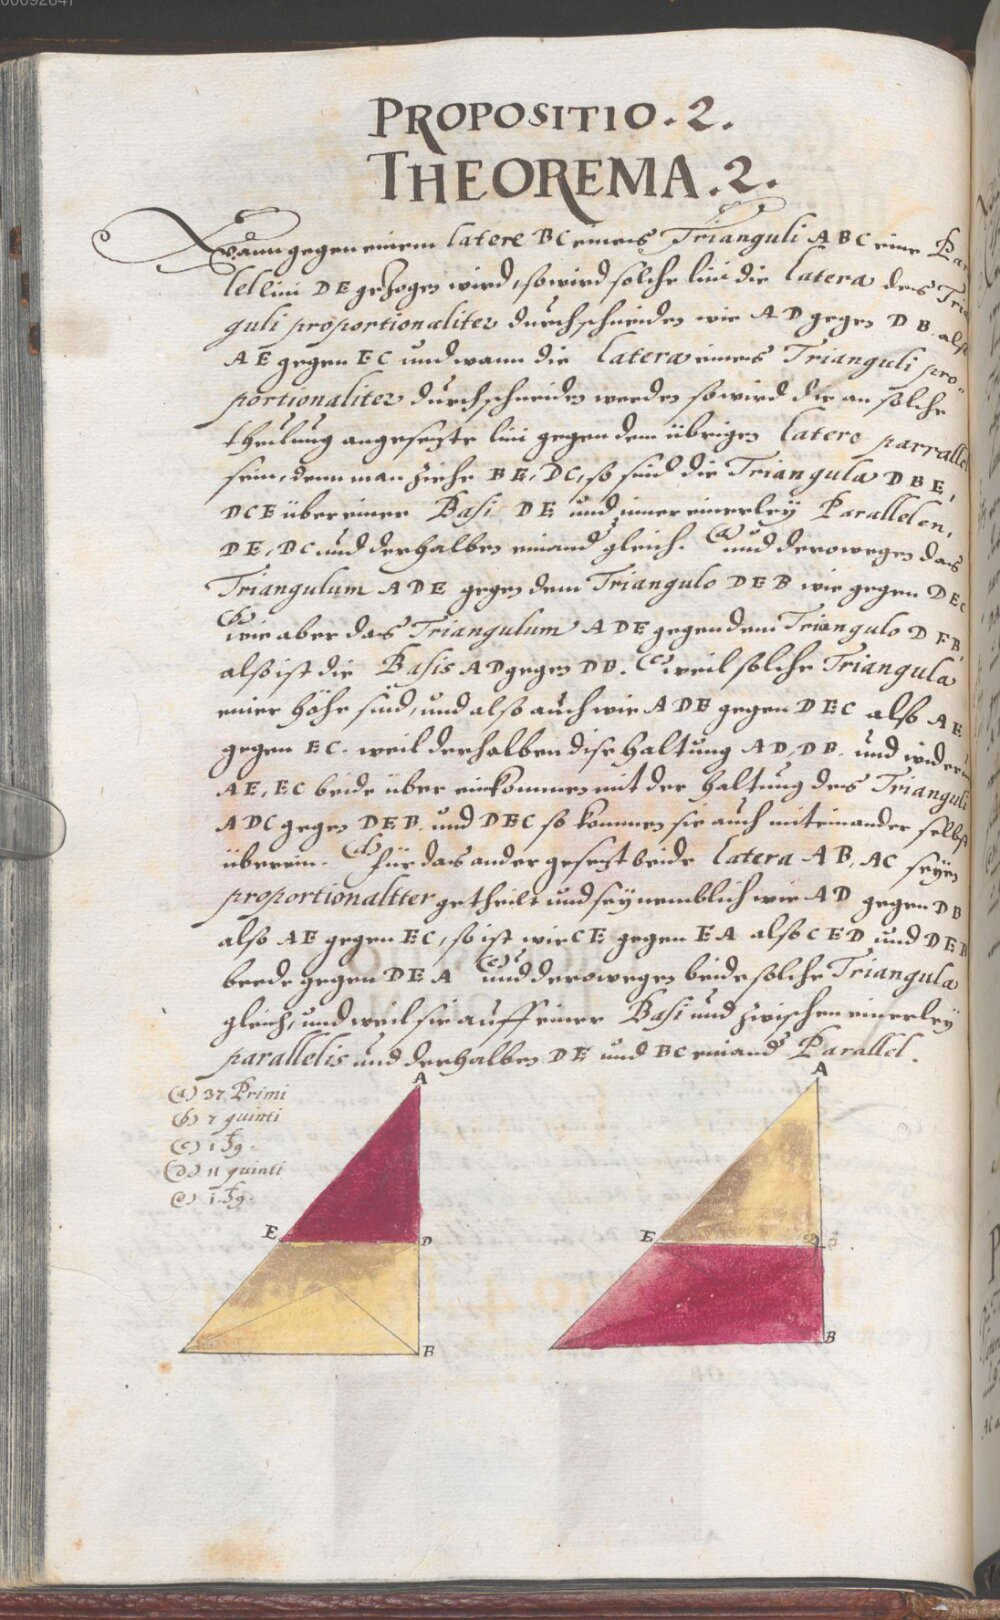 00092841
PROPOSITIO. 2.
THEOREMA. 2.
Wann gegen einem latere BC eines Trianguli ABC eine Par
lellini DE gezogen wird, so wird solche lini die latera des Trian
guli proportionaliter durchschneiden wie AD gegen DB. also
AE gegen EC und wann die latera eines Trianguli pro¬
portionaliter durchschneiden werden so wird die an solche
theilung angesezte lini gegen dem übrigen latere parrallel
sein, denn man ziehe BE, DC, so sind die Triangula DBE,
DCE über einer Basi DE und inner einerleÿ Parallelen,
DE, DC und derhalben einand gleich. (a) und derowegen das
Triangulum ADE gegen dem Triangulo DEB wie gegen DEC
(b) wie aber das Triangulum ADE gegen dem Triangulo DEB,
also ist die Basis AD gegen DB. (c) weil solche Triangula
einer höhe sind, und also auch wie ADE gegen DEC also AE
gegen EC. weil derhalben dise haltung AD, DB. und widerum
AE, EC beide über einkommen mit der haltung des Trianguli
ADC gegen DEB. und DEC so kommen sie auch miteinander selbst
überein. (d) für das ander gesezt beide latera AB, AC seÿen
proportionaltter getheilt und seÿ nemblich wie AD gegen DB
also AE gegen EC, so ist wie CE gegen EA also CED und DEB
beede gegen DEA (e) und derowegen beide solche Triangula
gleich, und weil sie auff einer Basi und zwischen einerleÿ
parallelis und derhalben DE und BC einand Parallel.
(a) 37 Primi
(b) 7 quinti
(c) 1 hg.
(d) 11 quinti
(e) 1. hg.
A
E
D
B
A
E
D
B